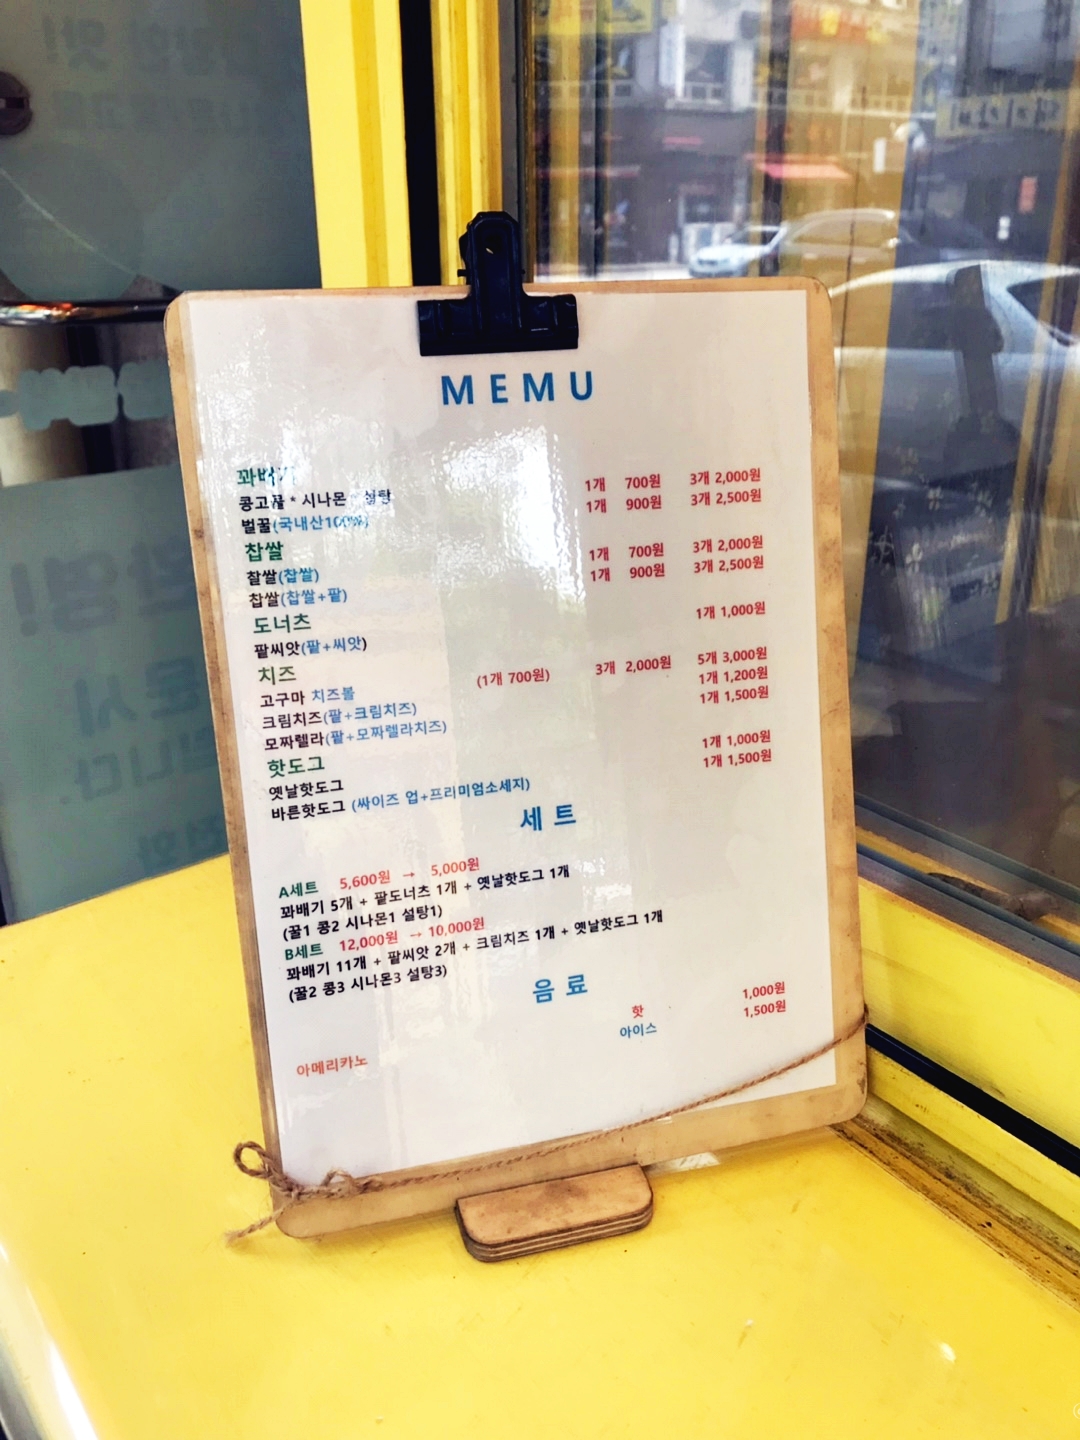 MEMU
꽈배기
콩고물 * 시나몬 * 설탕 1개 700원 3개 2,000원
벌꿀(국내산100%) 1개 900원 3개 2,500원
찹쌀
찰쌀(찹쌀) 1개 700원 3개 2,000원
찹쌀(찹쌀+팥) 1개 900원 3개 2,500원
도너츠
팥씨앗(팥+씨앗) 1개 1,000원
치즈
고구마 치즈볼 (1개 700원) 3개 2,000원 5개 3,000원
크림치즈(팥+크림치즈) 1개 1,200원
모짜렐라(팥+모짜렐라치즈) 1개 1,500원
핫도그
옛날핫도그 1개 1,000원
바른핫도그 (싸이즈 업+프리미엄소세지) 1개 1,500원
세트
A세트 5,600원 → 5,000원
꽈배기 5개 + 팥도너츠 1개 + 옛날핫도그 1개
(꿀1 콩2 시나몬1 설탕1)
B세트 12,000원 → 10,000원
꽈배기 11개 + 팥씨앗 2개 + 크림치즈 1개 + 옛날핫도그 1개
(꿀2 콩3 시나몬3 설탕3)
음료
핫 1,000원
아이스 1,500원
아메리카노